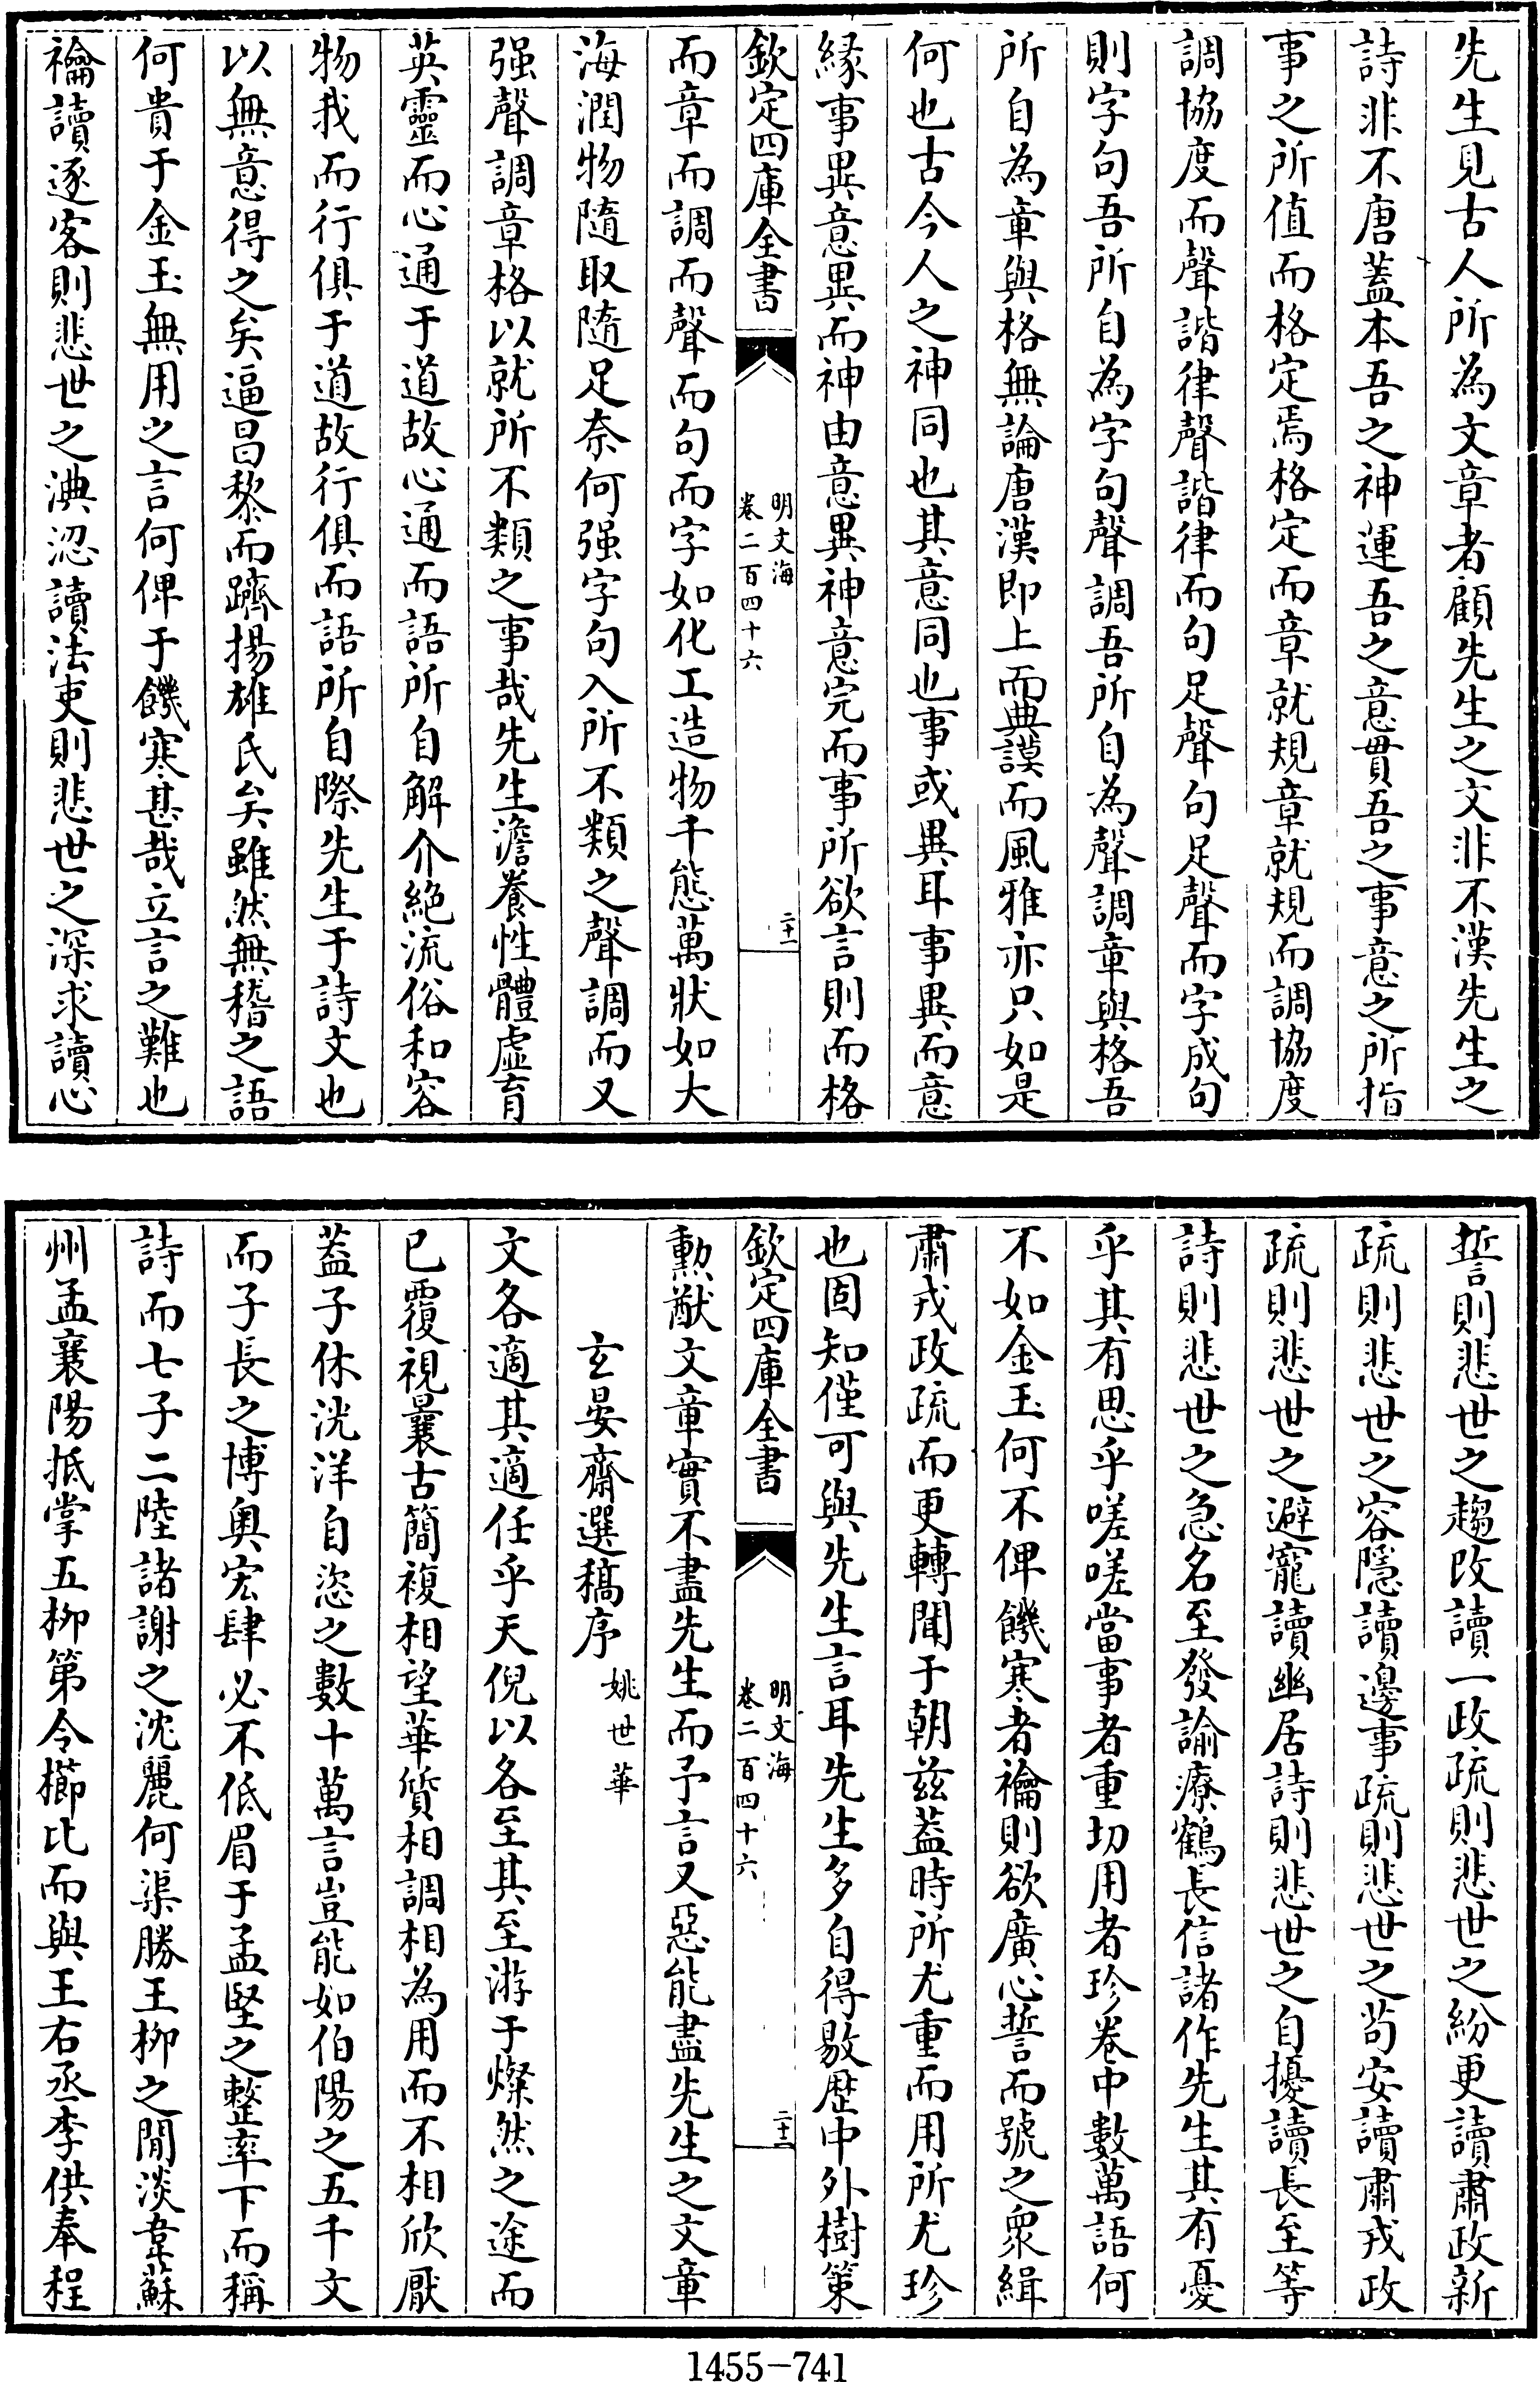 先生見古人所為文章者顧先生之文非不漢先生之
詩非不唐蓋本吾之神運吾之意貫吾之事意之所指
事之所值而格定焉格定而章就規章就規而調協度
調協度而聲諧律聲諧律而句足聲句足聲而字成句
則字句吾所自為字句聲調吾所自為聲調章與格吾
所自為章與格無論唐漢即上而典謨而風雅亦只如是
何也古今人之神同也其意同也事或異耳事異而意
緣事異意異而神由意異神意完而事所欲言則而格
欽定四庫全書
明文海
卷二百四十六
二十一
而章而調而聲而句而字如化工造物千態萬狀如大
海潤物隨取隨足奈何强字句入所不類之聲調而又
强聲調章格以就所不類之事哉先生澹養性體虛育
英靈而心通于道故心通而語所自解介絕流俗和容
物我而行俱于道故行俱而語所自際先生于詩文也
以無意得之矣逼昌黎而躋揚雄氏矣雖然無稽之語
何貴于金玉無用之言何俾于饑寒甚哉立言之難也
禴讀逐客則悲世之淟涊讀法吏則悲世之深求讀心
誓則悲世之趨改讀一政疏則悲世之紛更讀肅政新
疏則悲世之容隱讀邊事疏則悲世之苟安讀肅戎政
疏則悲世之避寵讀幽居詩則悲世之自擾讀長至等
詩則悲世之急名至發諭療鶴長信諸作先生其有憂
乎其有思乎嗟嗟當事者重切用者珍卷中數萬語何
不如金玉何不俾饑寒者禴則欲廣心誓而號之衆緝
肅戎政疏而更轉聞于朝兹蓋時所尤重而用所尤珍
也固知僅可與先生言耳先生多自得敭歷中外樹策
欽定四庫全書
明文海
卷二百四十六
二十二
勲猷文章實不盡先生而予言又惡能盡先生之文章
玄晏齋選稿序
姚世華
文各適其適任乎天倪以各至其至游于燦然之途而
已覆視曩古簡複相望華質相調相為用而不相欣厭
蓋子休洸洋自恣之數十萬言豈能如伯陽之五千文
而子長之博奥宏肆必不低眉于孟堅之整率下而稱
詩而七子二陸諸謝之沈麗何渠勝王柳之閒淡韋蘇
州孟襄陽抵掌五柳第令櫛比而與王右丞李供奉程
1455-741